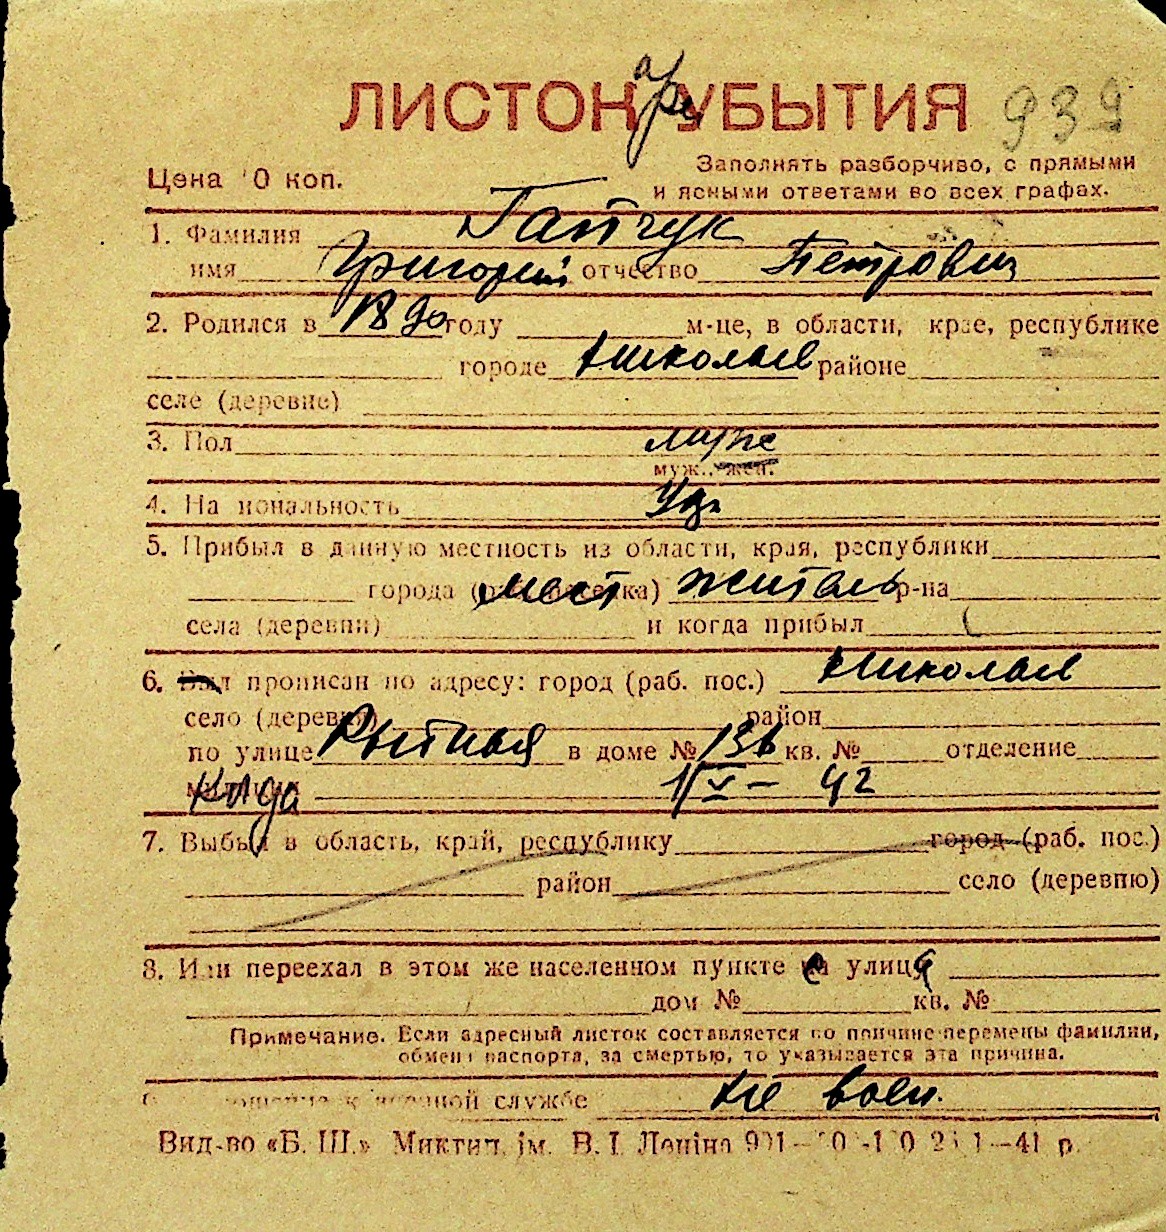 ЛИСТОК УБЫТИЯ 939
Цена 10 коп.
Заполнять разборчиво, с прямыми
и ясными ответами во всех графах.
1. Фамилия Гайчук
имя Григорий отчество Петрович
2. Родился в 1890 году м-це, в области, крае, республике
городе Николаев районе
селе (деревне)
3. Пол муж
муж., жен.
4. Национальность Укр
5. Прибыл в данную местность из области, края, республики
города (раб. поселка) мест житель р-на
села (деревни) и когда прибыл
6. Был прописан по адресу: город (раб. пос.) Николаев
село (деревня) район
по улице Рыбная в доме № 136 кв. № отделение
милиции Когда 1/V - 42
7. Выбыл в область, край, республику город (раб. пос.)
район село (деревню)
8. Или переехал в этом же населенном пункте с улицы
дом № кв. №
Примечание. Если адресный листок составляется по причине перемены фамилии,
обмена паспорта, за смертью, то указывается эта причина.
отношение к военной службе не воен.
Вид-во «Б. Ш.» Миктип. ім. В. І. Леніна 41 р.